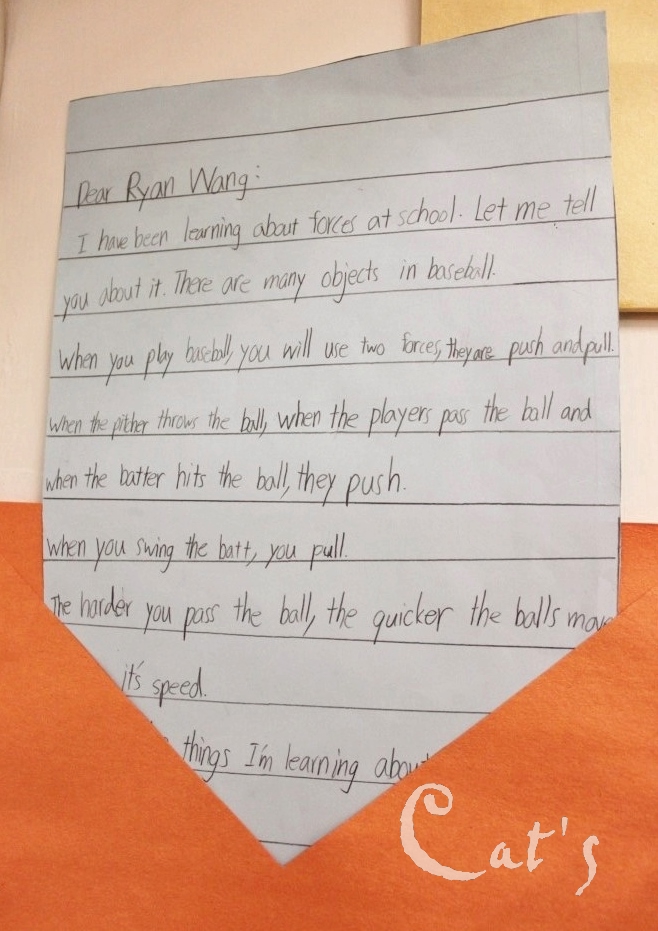 Dear Ryan Wang:
I have been learning about forces at school. Let me tell
you about it. There are many objects in baseball.
When you play baseball, you will use two forces, they are push and pull.
When the pither throws the ball, when the players pass the ball and
when the batter hits the ball, they push.
When you swing the batt, you pull.
The harder you pass the ball, the quicker the balls move
it's speed.
things I'm learning about
Cat's